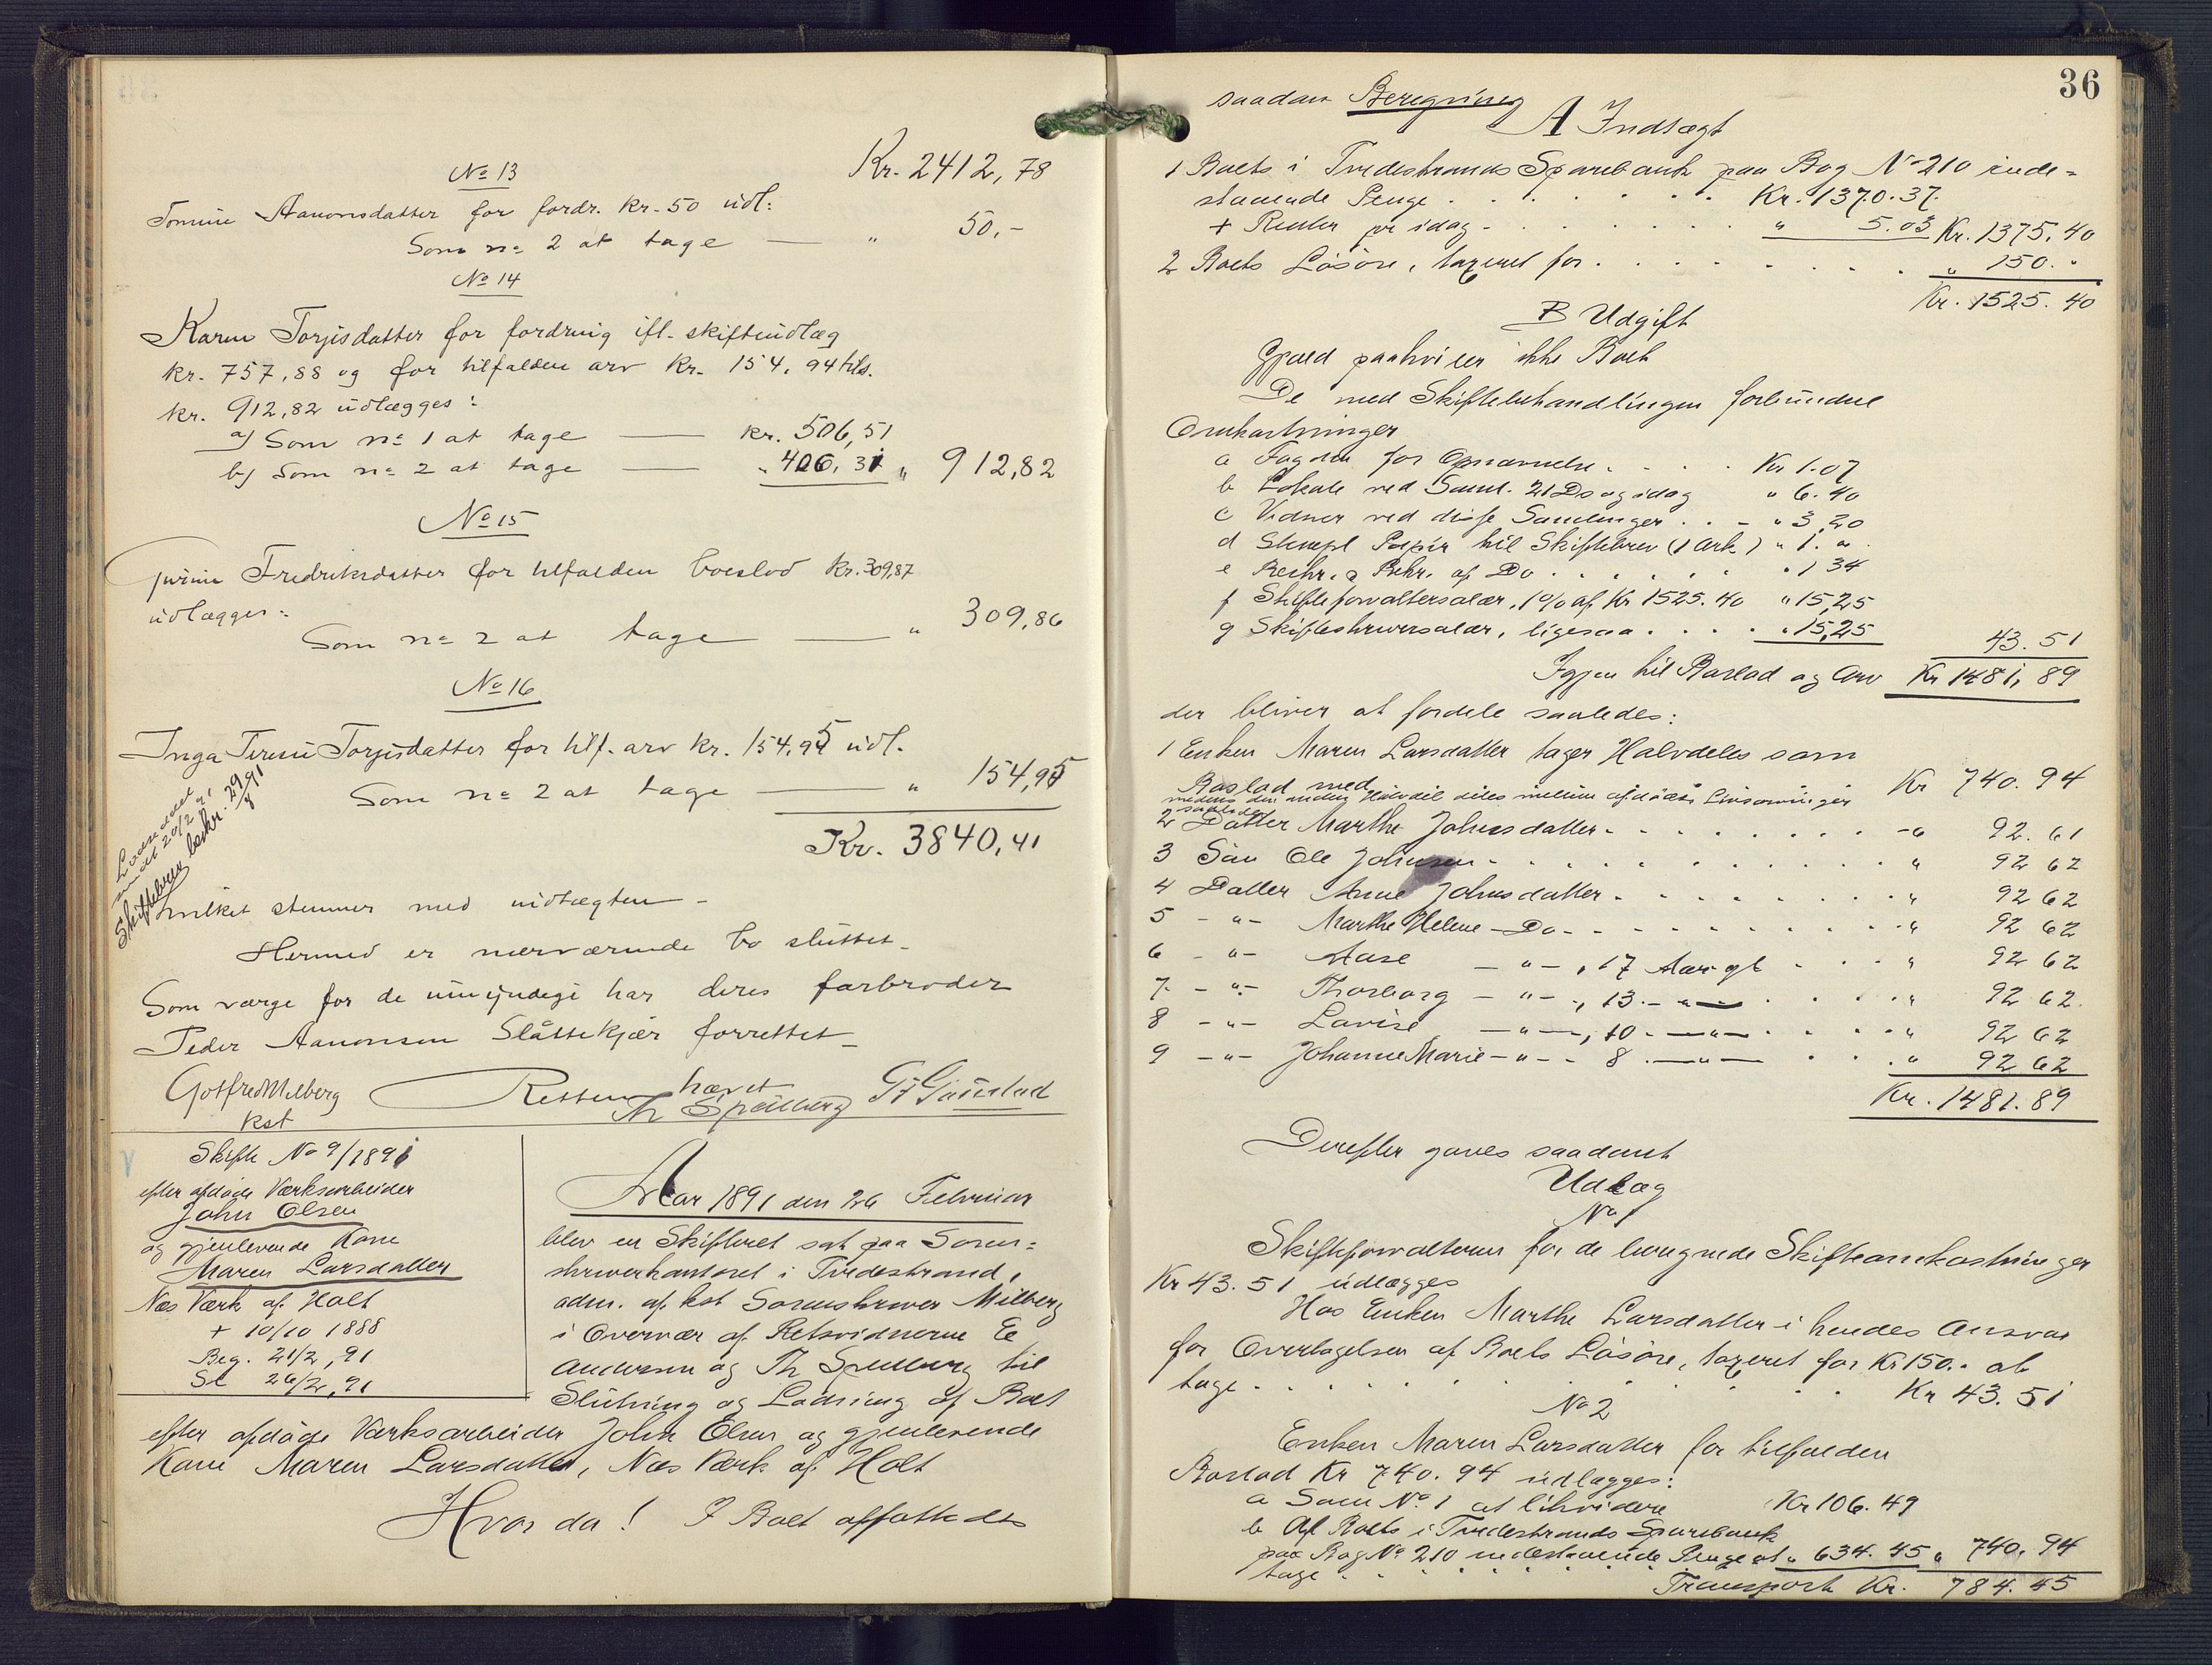 Kr. 2412,78
No 13
Tomine Aanonsdatter for fordr. Kr. 50 udl:
Som no 2 at tage — " 50,-
No 14
Karen Torjisdatter for fordring ifl. skifteudlæg
kr. 757,88 og for tilfalden arv Kr. 154,94 tils.
kr. 912,82 udlægges:
a) Som no 1 at tage — kr. 506,51
b) Som no 2 at tage — " 406,31 " 912,82
No 15
Gurine Fredriksdatter for tilfalden boeslod Kr. 309,87
udlægges:
Som no 2 at tage — " 309,86
No 16
Inga Terese Torjisdatter for tilf. arv kr. 154,95 udl.
Som no 2 at tage — " 154,95
Kr. 3840,41
Skiftebrev beskr. 29/8 91
hvilket stemmer med indtægten -
Hermed er nærværende bo sluttet.
Som værge for de umyndige har deres farbroder
Peder Aanonsen Slåttekjær forrettet -
Retten hævet
Gotfred Milberg
kst
Th Spilling
Skifte No 9/1891
efter afdøde Værksarbeider
John Olsen
og gjenlevende Kone
Maren Larsdatter
Næs Værk af Holt
+ 10/10 1888
Beg. 21/2, 91
Sl 26/2, 91
Aar 1891 den 26 Februar
blev en Skifteret sat paa Soren=
skriverkontoret i Tvedestrand,
adm. af kst Sorenskriver Milberg
i Overvær af Retsvidnerne E
Andersen og Th Spilling til
Slutning og Lodning af Boet
efter afdøde Værksarbeider John Olsen og gjenlevende
Kone Maren Larsdatter, Næs Værk af Holt
Hvor da! I Boet affattedes
36
saadan Beregning
A Indtægt
1 Boets i Tvedestrands Sparebank paa Bog No 210 inde=
staaende Penge . . . . . Kr. 1370.37.
+ Renter pr idag . . . . . " 5.03 Kr. 1375.40
2 Boets Løsøre, taxeret for . . . . . " 150."
Kr. 1525.40
B Udgift
Gjæld paahviler ikke Boet
De med Skiftebehandlingen forbundne
Omkostninger
a Fogden for Opnævnelse . . . . Kr 1.07
b Lokale ved Saml. 21 Ds og idag " 6.40
c Vidner ved disse Samlinger . . - " 3,20
d Stempl Papir til Skiftebrev (1 Ark) " 1. "
e Beskr. & Bekr. af Do . . . . . " 1 34
f Skifteforvaltersalær, 1% af Kr 1525.40 " 15,25
g Skifteskriversalær, ligesaa . . . . " 15,25 43.51
Igjen til Boslod og Arv Kr 1481,89
der bliver at fordele saaledes:
1 Enken Maren Larsdatter tager Halvdelen som
Boslod med Kr 740.94
medens den anden Halvdel deles mellem afdødes Livsarvinger
saaledes
2 Datter Marthe Johnsdatter - . . . . . . -" 92.61
3 Søn Ole Johnsen - . . . . . . " 92 62
4 Datter Anne Johnsdatter . . . . . . " 92 62
5 - " - Marthe Helene - Do - . . . . . " 92 62
6 - " - Aase - " - , 17 Aar gl . . . " 92 62
7 - " - Thorborg - " - , 13 - " - . . . " 92.62.
8 - " - Lovise - " - , 10 - " - . . . " 92 62
9 - " - Johanne Marie - " - - 8 - " - . . . " 92 62
Kr. 1481.89
Derefter gaves saadant
Udlæg
No 1
Skifteforvalteren for de beregnede Skifteomkostninger
Kr 43.51 udlægges
Hos Enken Marthe Larsdatter i hendes Ansvar
for Overtagelsen af Boets Løsøre, taxeret for Kr 150.- at
tage . . . . . . . . Kr 43.51
No 2
Enken Maren Larsdatter for tilfalden
Boslod Kr 740.94 udlægges:
a Som No 1 at likvidere Kr 106.49
b Af Boets i Tvedestrands Sparebank
paa Bog No 210 indestaaende Penge at " 634.45 " 740.94
tage . . . . . . .
Transport Kr. 784.45